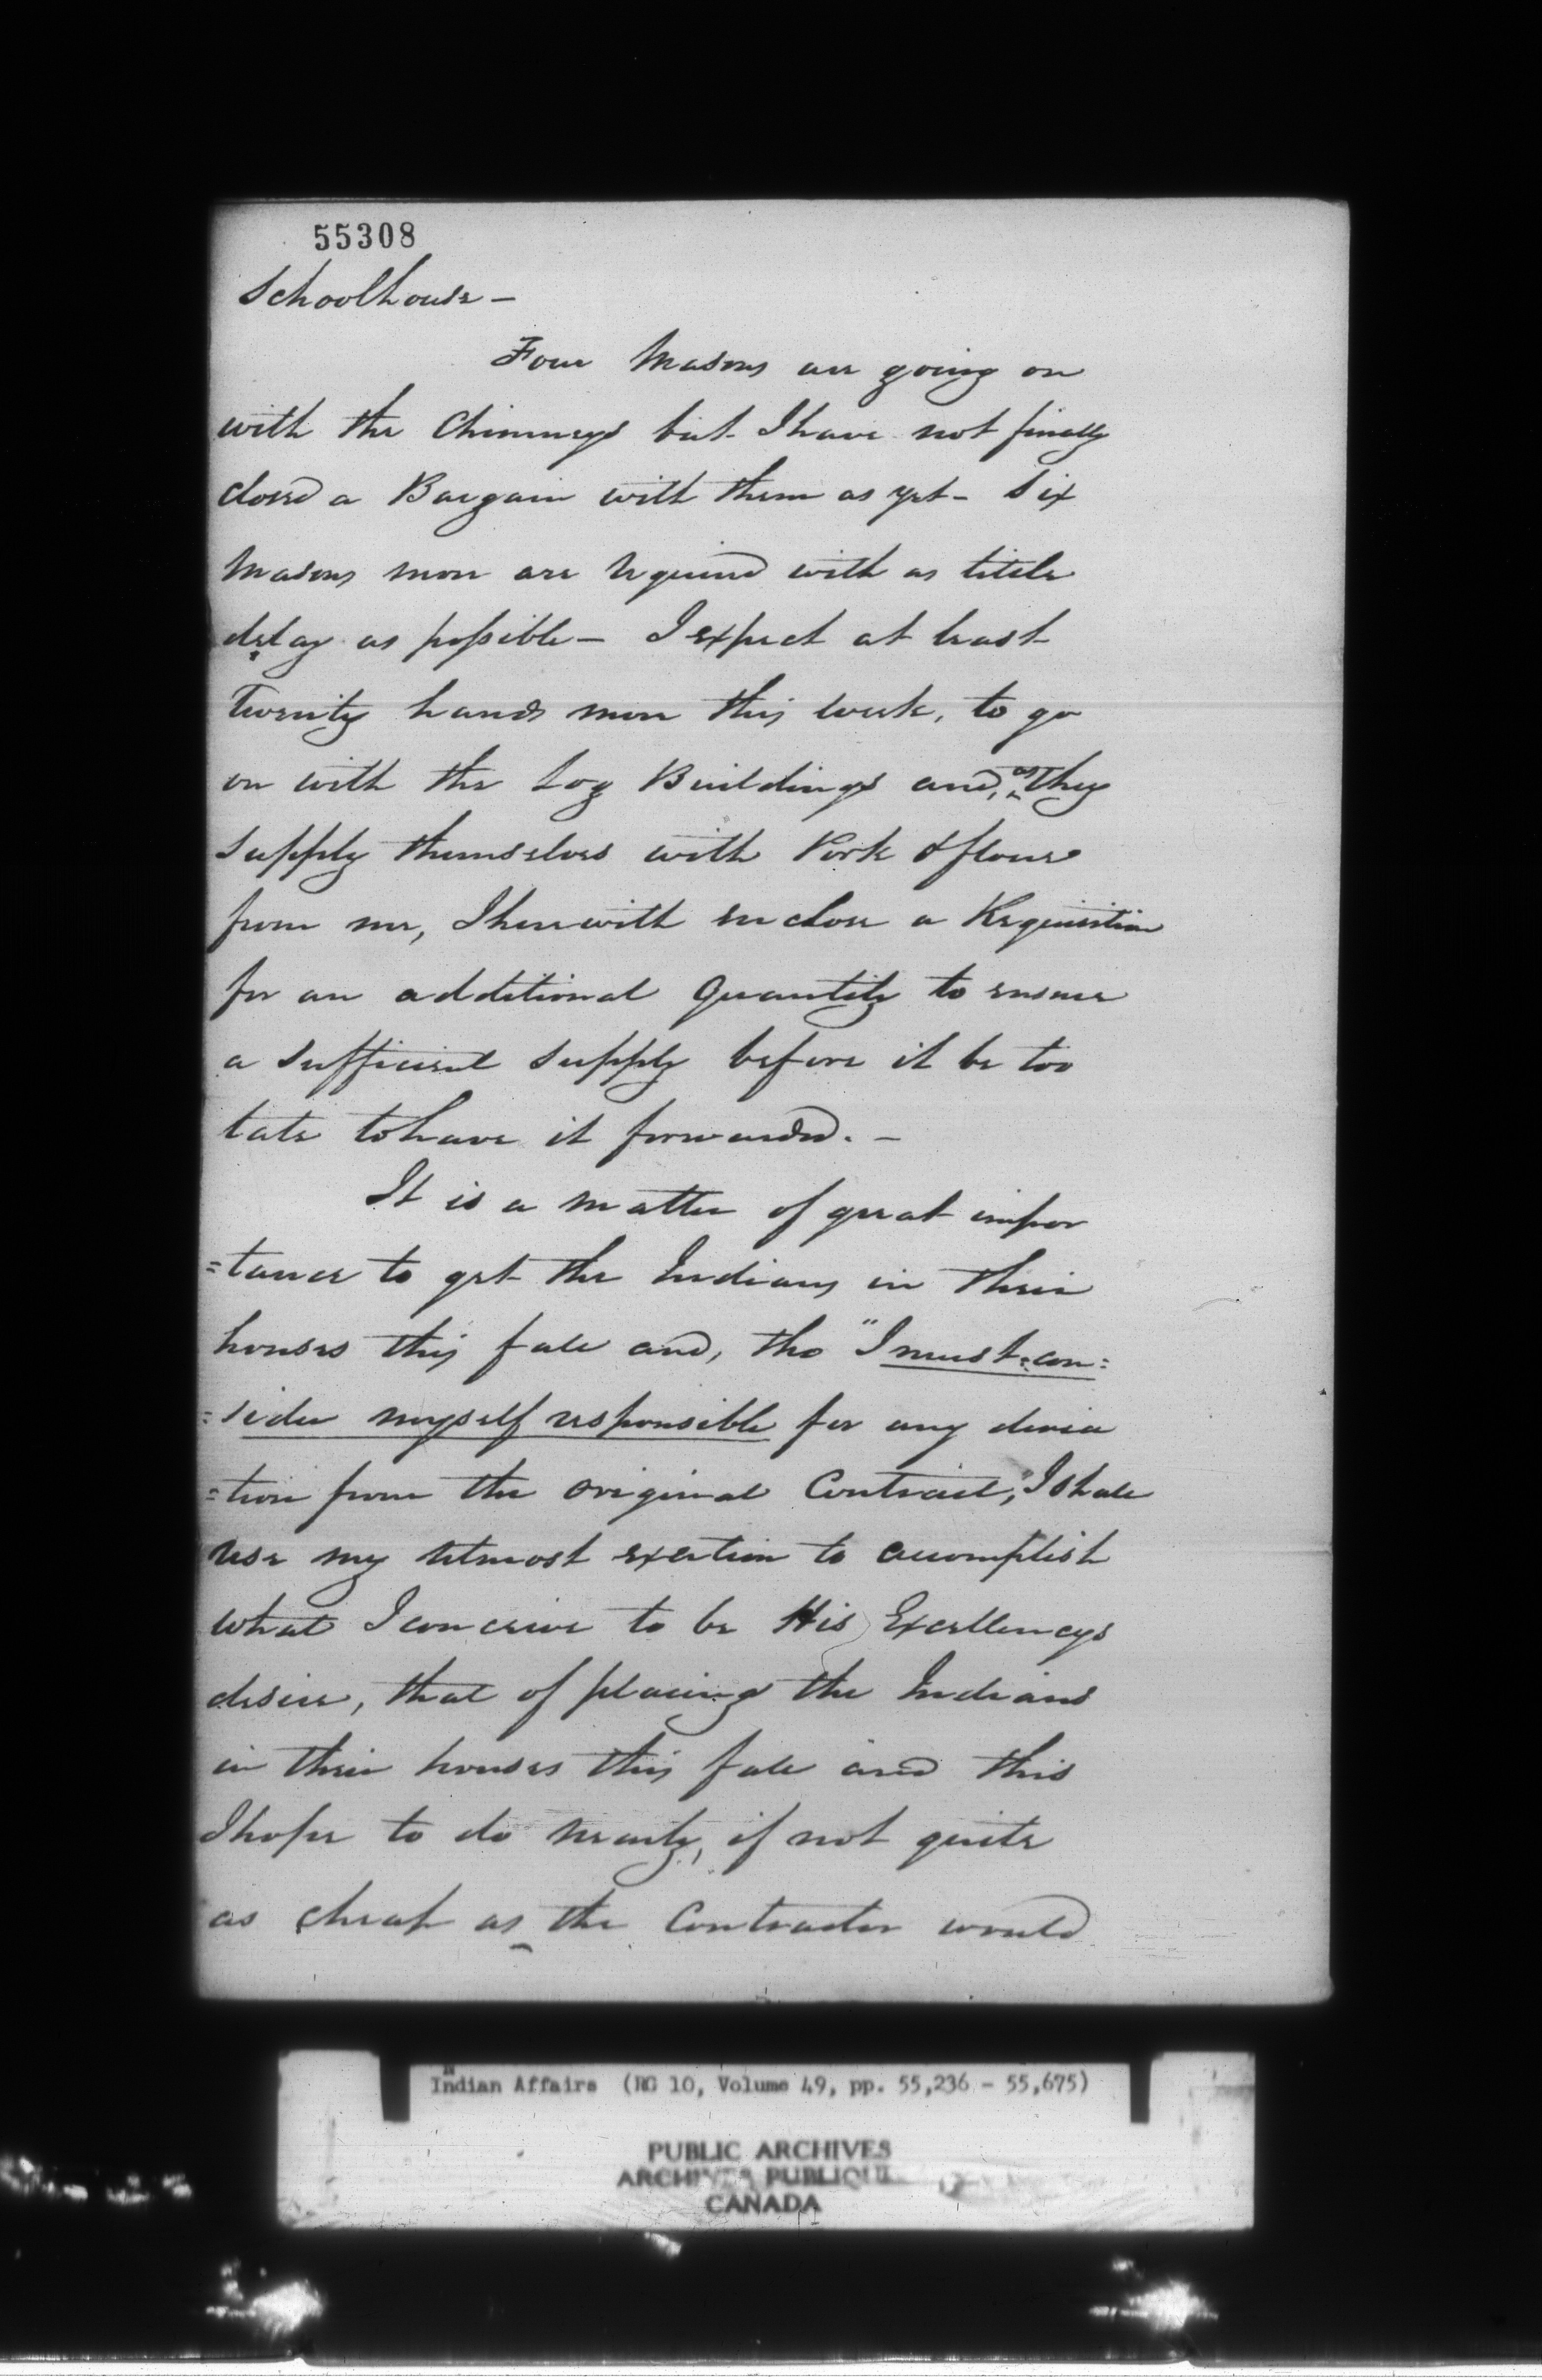 55308
Schoolhouse -
Four Masons are going on
with the Chimneys but I have not finally
closed a Bargain with them as yet - Six
Masons more are required with as little
delay as possible - I expect at least
Twenty hands more this week, to go
on with the Log Buildings and, as they
supply themselves with Pork & flour
from me, I herewith enclose a Requisition
for an additional Quantity to ensure
a sufficient supply before it be too
late to have it forwarded. -
It is a matter of great impor
=tance to get the Indians in their
houses this fall and, tho "I must con=
=sider myself responsible for any devia
=tion from the original Contract," I shall
use my utmost exertion to accomplish
what I conceive to be His Excellencys
desire, that of placing the Indians
in their houses this fall and this
I hope to do nearly, if not quite
as cheap as the Contractor would
Indian Affairs (RG 10, Volume 49, pp. 55,236 - 55,675)
PUBLIC ARCHIVES
ARCHIVES PUBLIQUES
CANADA